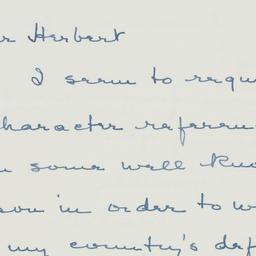 r Herbert
I seem to requ
haracter referen
n some well kno
son in order to w
my country's def